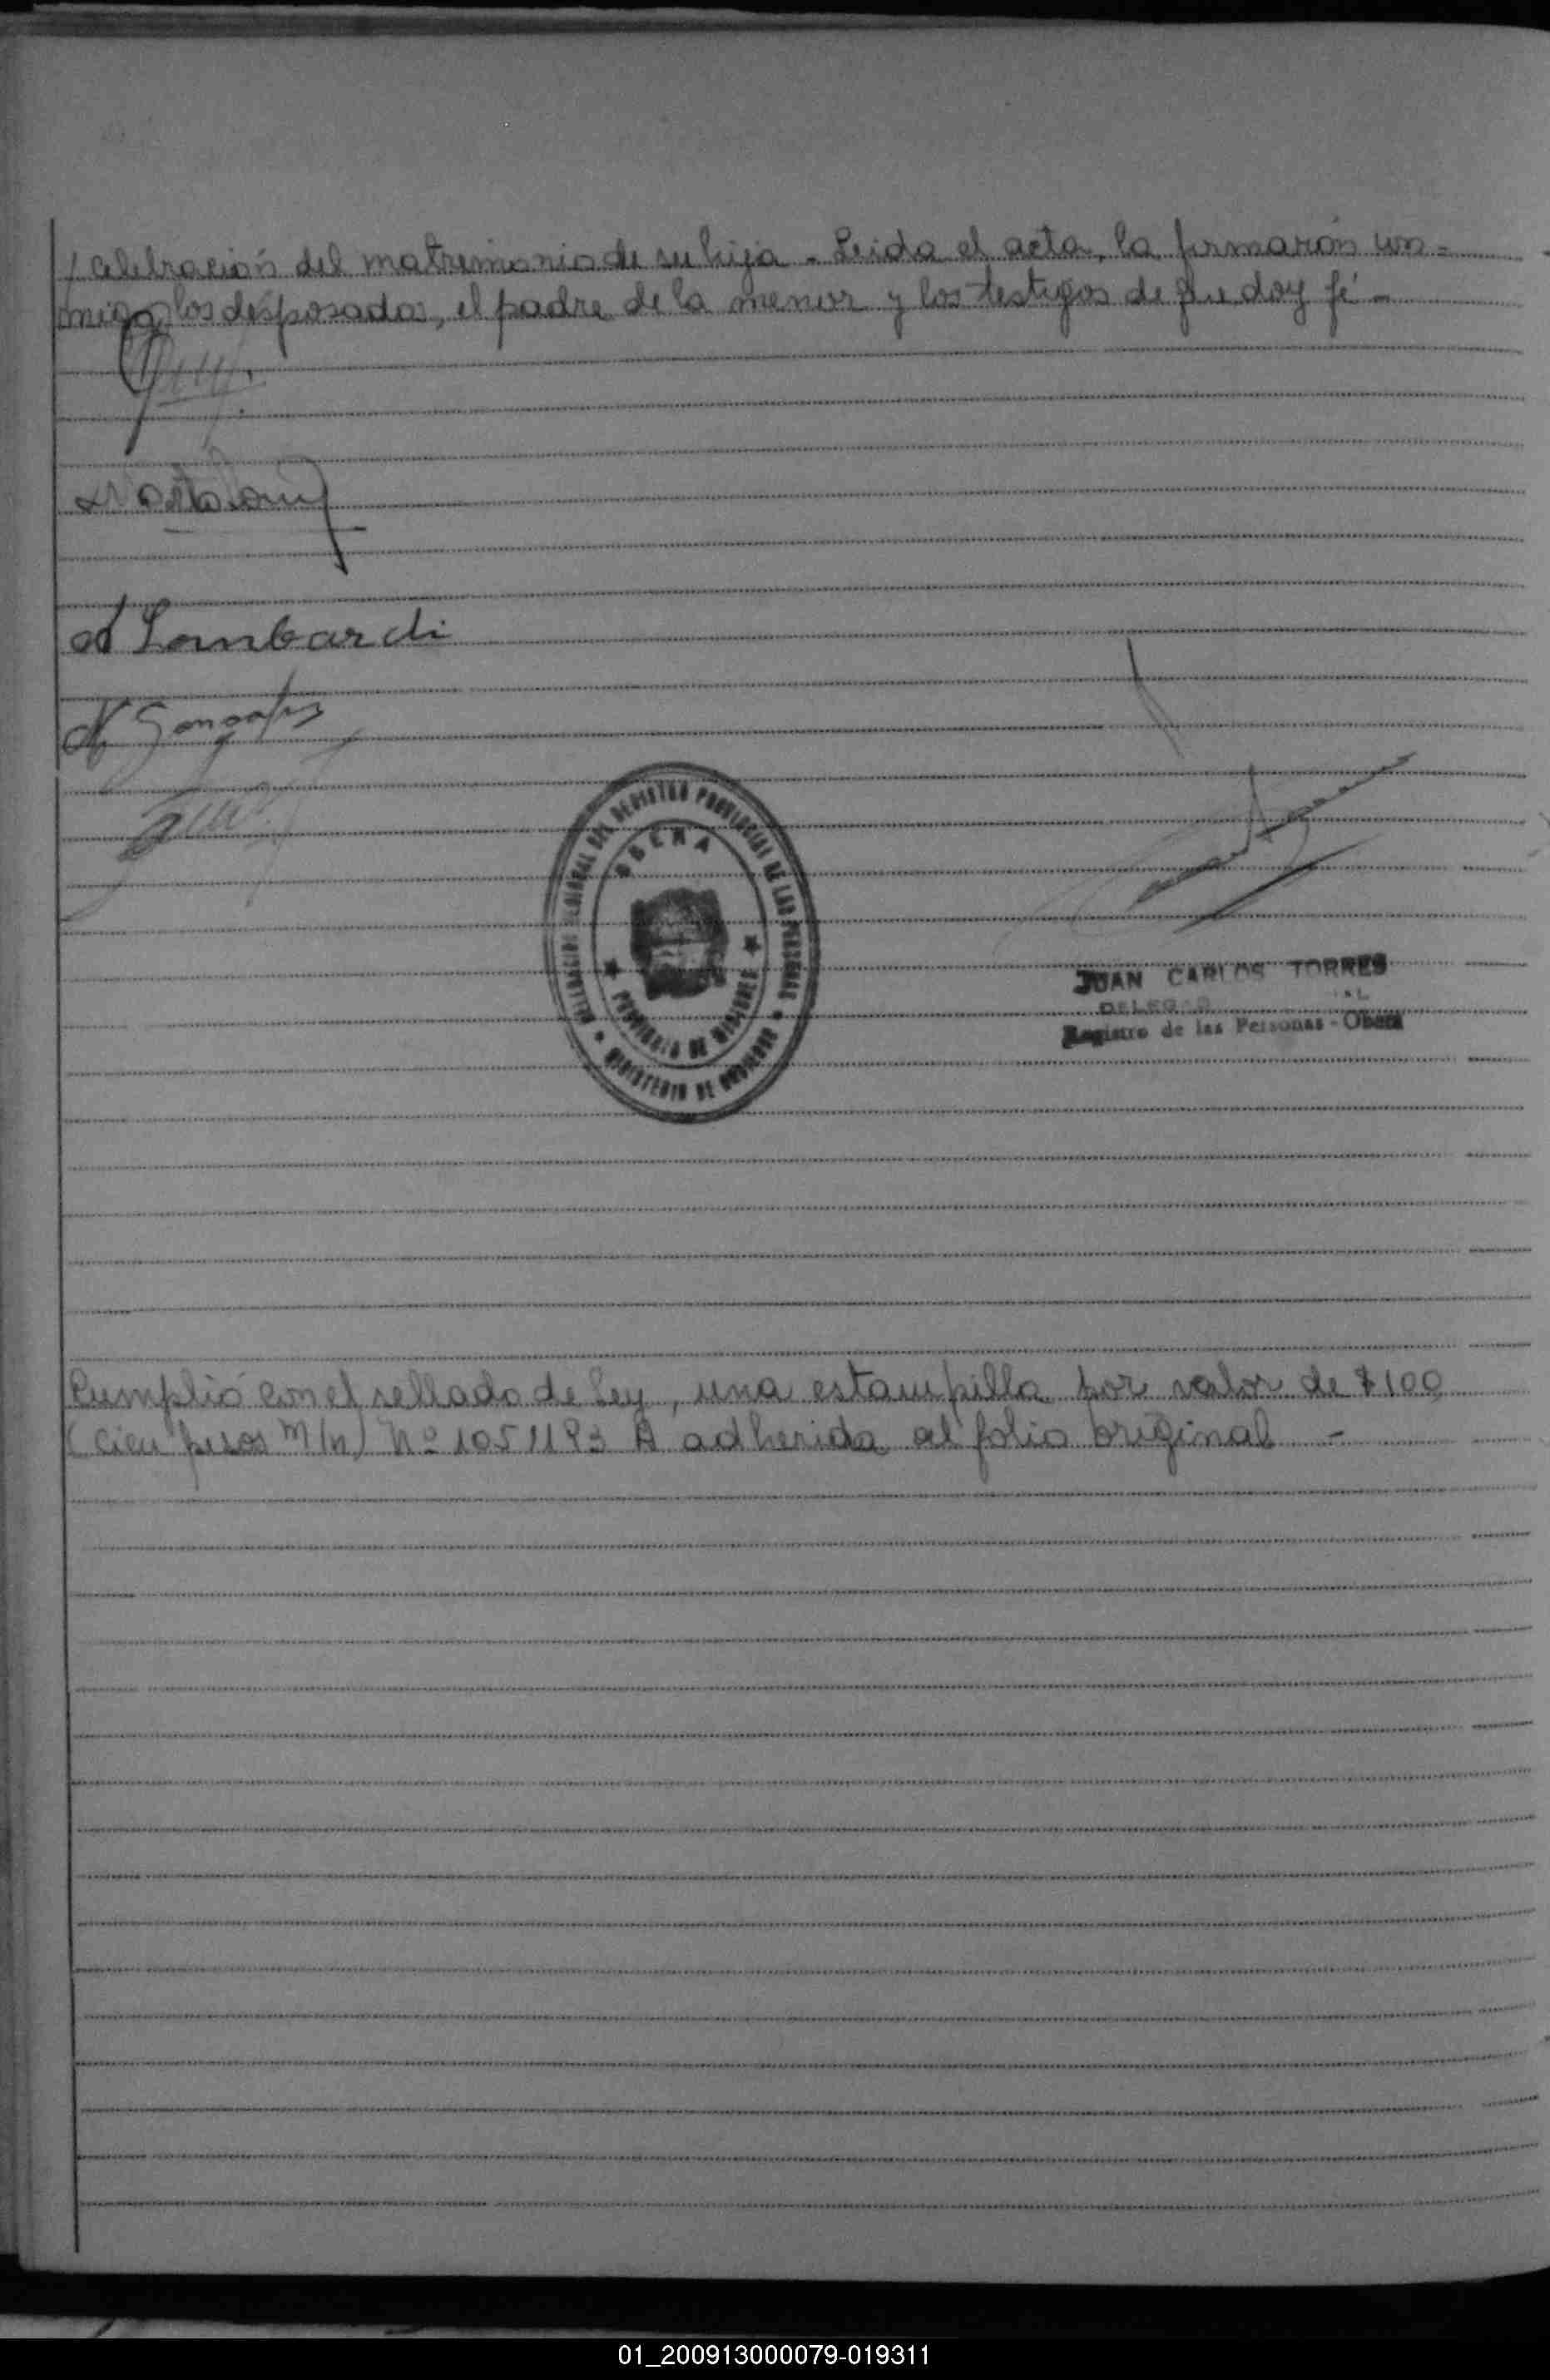 / celebración del matrimonio de su hija - Leida el acta, la firmarón con=
migo los desposados, el padre de la menor y los testigos de que doy fé -
Lombardi
DELEGACION GENERAL DEL REGISTRO PROVINCIAL DE LAS PERSONAS
OBERA
PROVINCIA DE MISIONES
MINISTERIO DE GOBIERNO
JUAN CARLOS TORRES
Registro de las Personas - Oberá
Cumplió con el sellado de Ley, una estampilla por valor de $ 100
(cien pesos m/n) Nº 1051193 A adherida al folio original -
01_200913000079-019311